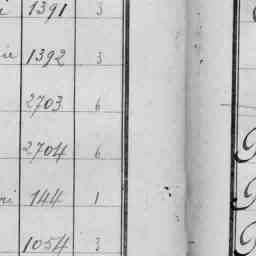 1391 3
1392 3
2703 6
2704 6
144 1
1054 3